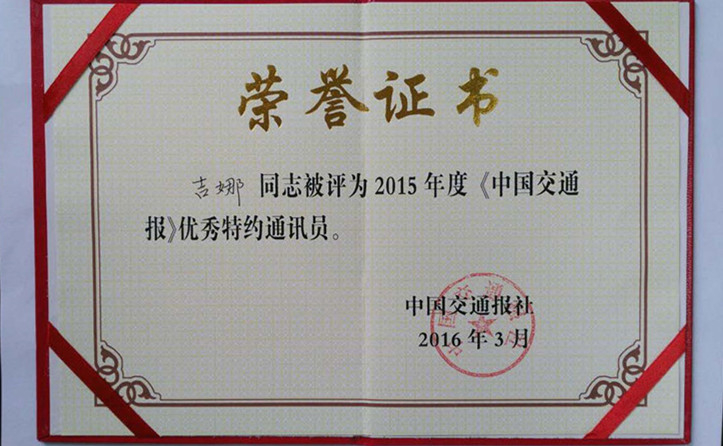 荣誉证书
吉娜 同志被评为 2015 年度《中国交通
报》优秀特约通讯员。
中国交通报社
2016 年 3 月